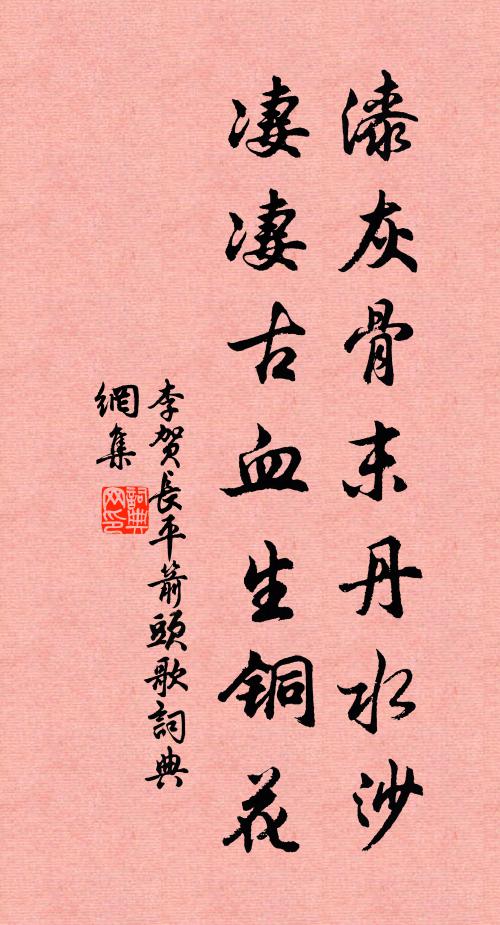 漆灰骨末丹水沙
凄凄古血生铜花
李贺長平箭頭歌詞典
網集
詞典
网印